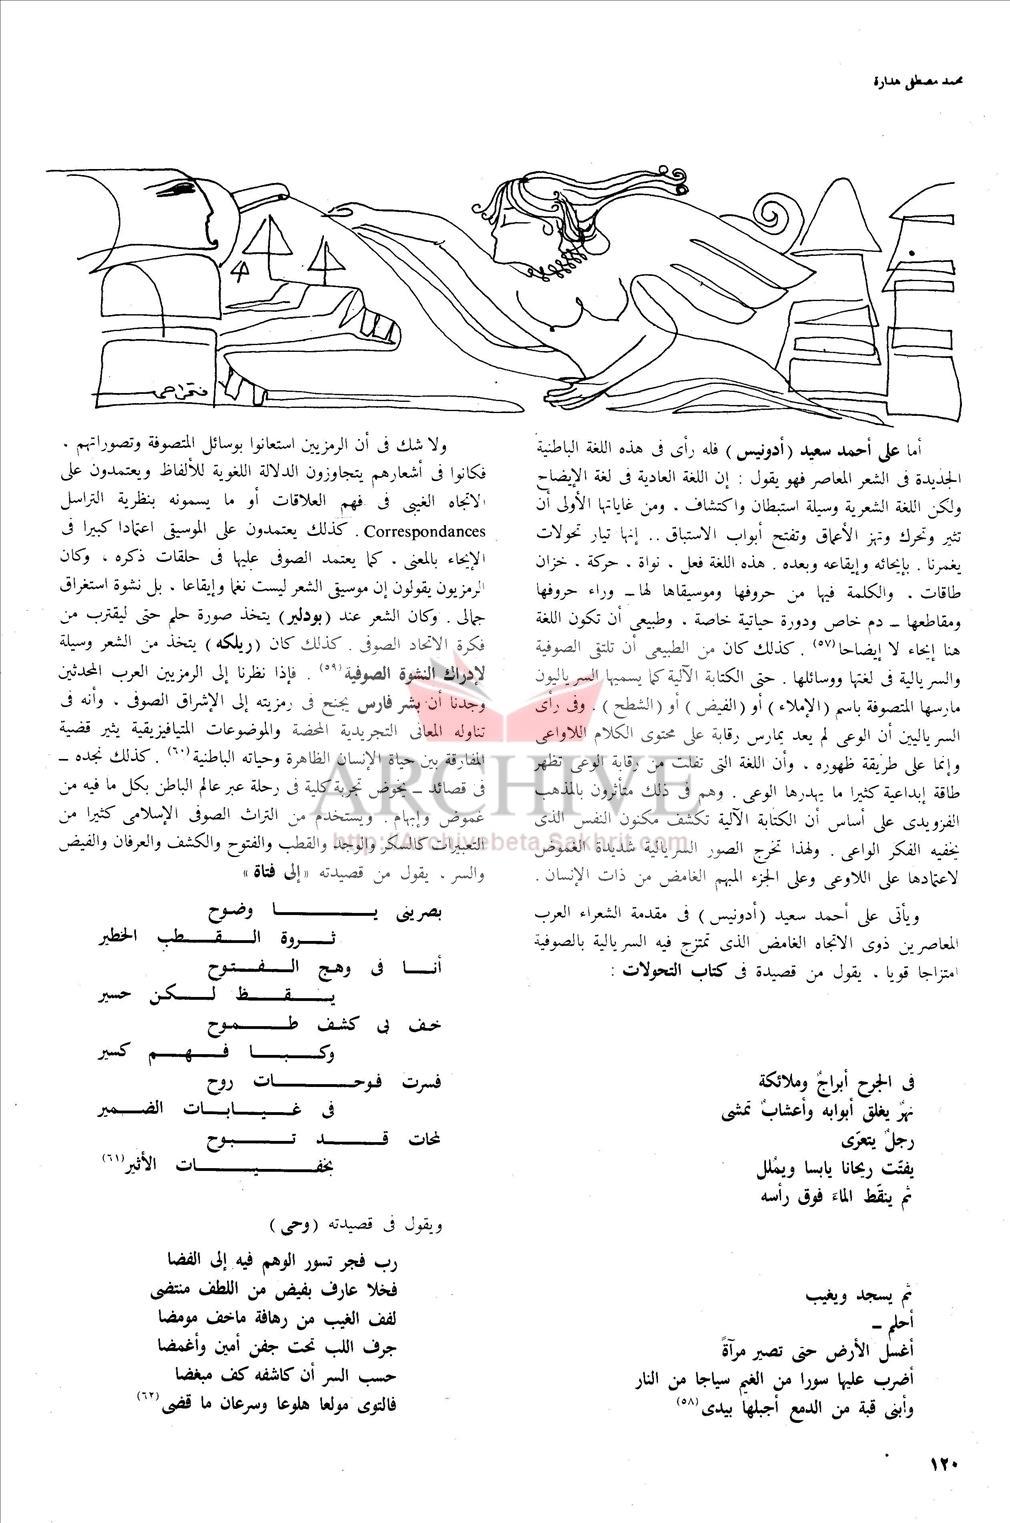 محمد مصطفى هدارة
فتحى احمد
أما على أحمد سعيد (أدونيس) فله رأى فى هذه اللغة الباطنية
الجديدة فى الشعر المعاصر فهو يقول : إن اللغة العادية فى لغة الإيضاح
ولكن اللغة الشعرية وسيلة استبطان واكتشاف . ومن غاياتها الأولى أن
تثير وتحرك وتهز الأعماق وتفتح أبواب الاستباق .. إنها تيار تحولات
يغمرنا . بإيحائه وإيقاعه وبعده . هذه اللغة فعل . نواة . حركة . خزان
طاقات . والكلمة فيها من حروفها وموسيقاها لها ــ وراء حروفها
ومقاطعها ــ دم خاص ودورة حياتية خاصة . وطبيعى أن تكون اللغة
هنا إيحاء لا إيضاحا (٥٧) . كذلك كان من الطبيعى أن تلتقى الصوفية
والسريالية فى لغتها ووسائلها . حتى الكتابة الآلية كما يسميها السرياليون
مارسها المتصوفة باسم (الإملاء) أو (الفيض) أو (الشطح) . وفى رأى
السرياليين أن الوعى لم يعد يمارس رقابة على محتوى الكلام اللاواعى
وإنما على طريقة ظهوره . وأن اللغة التى تفلت من رقابة الوعى تظهر
طاقة إبداعية كثيرا ما يهدرها الوعى . وهم فى ذلك متأثرون بالمذهب
الفرويدى على أساس أن الكتابة الآلية تكشف مكنون النفس الذى
يخفيه الفكر الواعى . ولهذا تخرج الصور السريالية شديدة الغموض
لاعتمادها على اللاوعى وعلى الجزء المبهم الغامض من ذات الإنسان .
ويأتى على أحمد سعيد (أدونيس) فى مقدمة الشعراء العرب
المعاصرين ذوى الاتجاه الغامض الذى تمتزج فيه السريالية بالصوفية
امتزاجا قويا . يقول من قصيدة فى كتاب التحولات :
فى الجرح أبراجٌ وملائكة
نهرٌ يغلق أبوابه وأعشابٌ تمشى
رجلٌ يتعرّى
يفتّت ريحانا يابسا ويهلل
ثم ينقّط الماءَ فوق رأسه
ثم يسجد ويغيب
أحلم ــ
أغسل الأرض حتى تصير مرآةً
أضرب عليها سورا من الغيم سياجا من النار
وأبنى قبة من الدمع أجبلها بيدى (٥٨)
ولا شك فى أن الرمزيين استعانوا بوسائل المتصوفة وتصوراتهم .
فكانوا فى أشعارهم يتجاوزون الدلالة اللغوية للألفاظ ويعتمدون على
الاتجاه الغيبى فى فهم العلاقات أو ما يسمونه بنظرية التراسل
Correspondances . كذلك يعتمدون على الموسيقى اعتمادا كبيرا فى
الإيحاء بالمعنى . كما يعتمد الصوفى عليها فى حلقات ذكره . وكان
الرمزيون يقولون إن موسيقى الشعر ليست نغما وإيقاعا . بل نشوة استغراق
جمالى . وكان الشعر عند (بودلير) يتخذ صورة حلم حتى ليقترب من
فكرة الاتحاد الصوفى . كذلك كان (ريلكه) يتخذ من الشعر وسيلة
لإدراك النشوة الصوفية (٥٩) . فإذا نظرنا إلى الرمزيين العرب المحدثين
وجدنا أن بشر فارس يجنح فى رمزيته إلى الإشراق الصوفى . وأنه فى
تناوله المعانى التجريدية المحضة والموضوعات الميتافيزيقية يثير قضية
المفارقة بين حياة الإنسان الظاهرة وحياته الباطنية (٦٠) . كذلك نجده ــ
فى قصائد ــ يخوض تجربة كلية فى رحلة عبر عالم الباطن بكل ما فيه من
غموض وإبهام . ويستخدم من التراث الصوفى الإسلامى كثيرا من
التعبيرات كالسكر والوجد والقطب والفتوح والكشف والعرفان والفيض
والسر . يقول من قصيدته «إلى فتاة»
بصرينى يـا وضوح
ثروة القطب الخطير
أنا فى وهج الفتوح
يقظ لكن حسير
خف بى كشف طموح
وكبا فهم كسير
فسرت فوحات روح
فى غيابات الضمير
لمحات قد تبوح
بخفيات الأثير (٦١)
ويقول فى قصيدته (وحى)
رب فجر تسور الوهم فيه إلى الفضا
فخلا عارف بفيض من اللطف منتضى
لفف الغيب من رهافة ماخف مومضا
جرف اللب تحت جفن أمين وأغمضا
حسب السر أن كاشفه كف مبغضا
فالتوى مولعا هلوعا وسرعان ما قضى (٦٢)
١٢٠
ARCHIVE
http://Archivebeta.Sakhrit.com